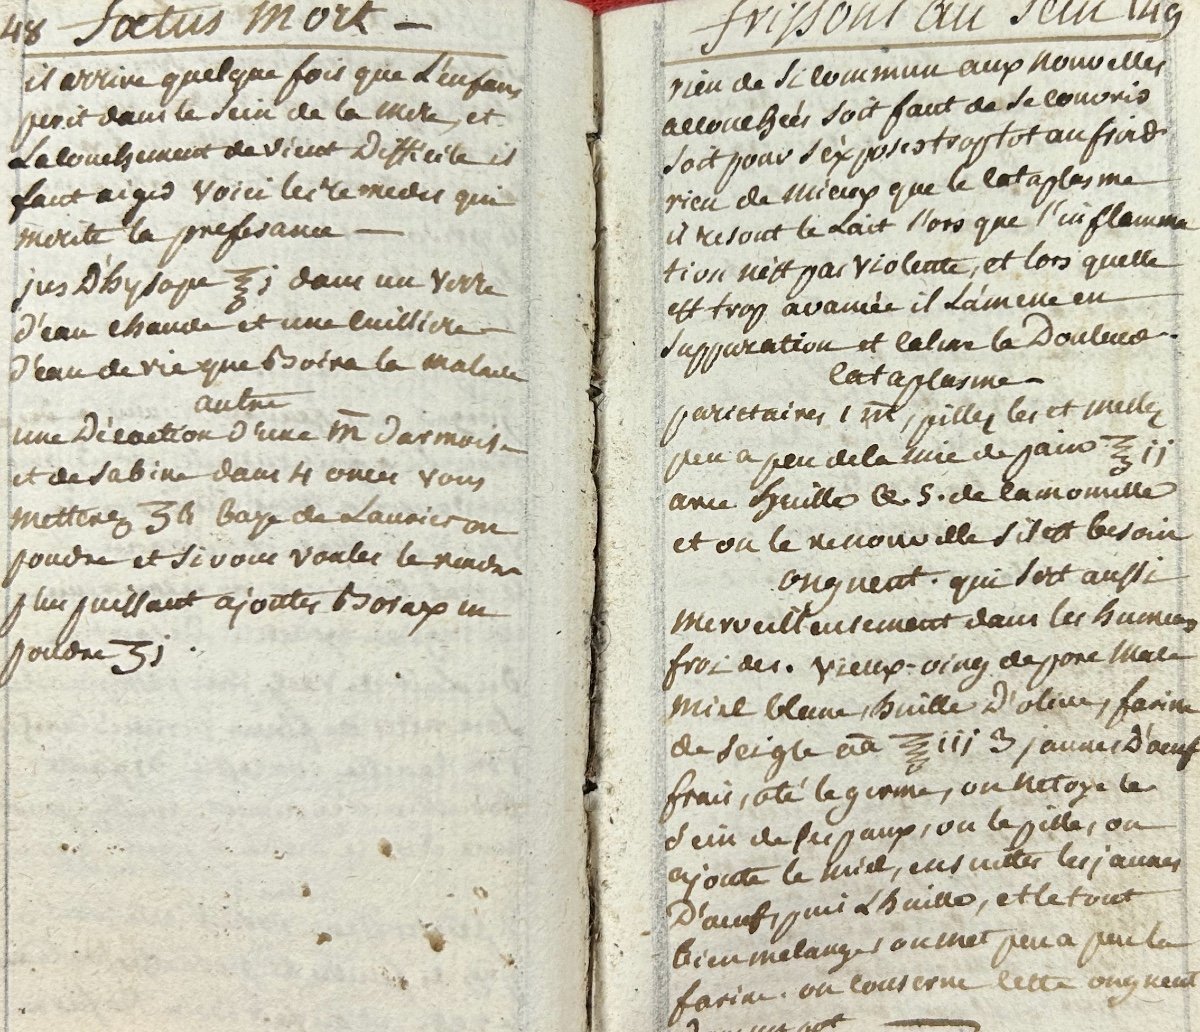 48 Foetus Mort –
il arrive quelque fois que L'enfans
perit dans le sein de la mere, et
Lacouchement devient Difficile il
faut aider voici les remedes qui
merite la preferance —
jus D'hysope ℥ j dans un verre
d'eau chaude et une cuilliere
d'eau de vie que Boira la malade
autre
une Décoction d'une m̅ Darmoise
et de sabine dans 4 onces vous
metterez ʒ ß baye de Laurier en
poudre et si vous voules le rendre
plus puissant ajoutes Borax en
poudre ʒ j .
frissons au sein 149
rien de si commun aux nouvelles
accouchées soit faut de se couvrir
soit pour s'éxposer trop tot au froid
rien de mieux que le cataplasme
il resout le Lait lors que l'inflamma
tion n'est pas violente, et lors quelle
est trop avancée il L'amene en
suppuration et calme la Douleur.
cataplasme –
parietaires 1 m̅, pillez les et mellez
peu a peu de la mie de pain ℥ ij
avec huille q. s. de camomille
et on le renouvelle s'il est besoin
onguent. qui sert aussi
merveilleusement dans les humeurs
froides. vieux-oing de porc male
miel blanc, huille D'olive, farine
de seigle aa ℥ iij 3 jaunes D'oeuf
frais, oté le germe, on netoye le
sein de ses peaux, on le pille, on
ajoute le miel, ensuittes les jaunes
D'oeuf, puis L'huille, et le tout
bien melangés on met peu a peu la
farine. on conserve cette onguent